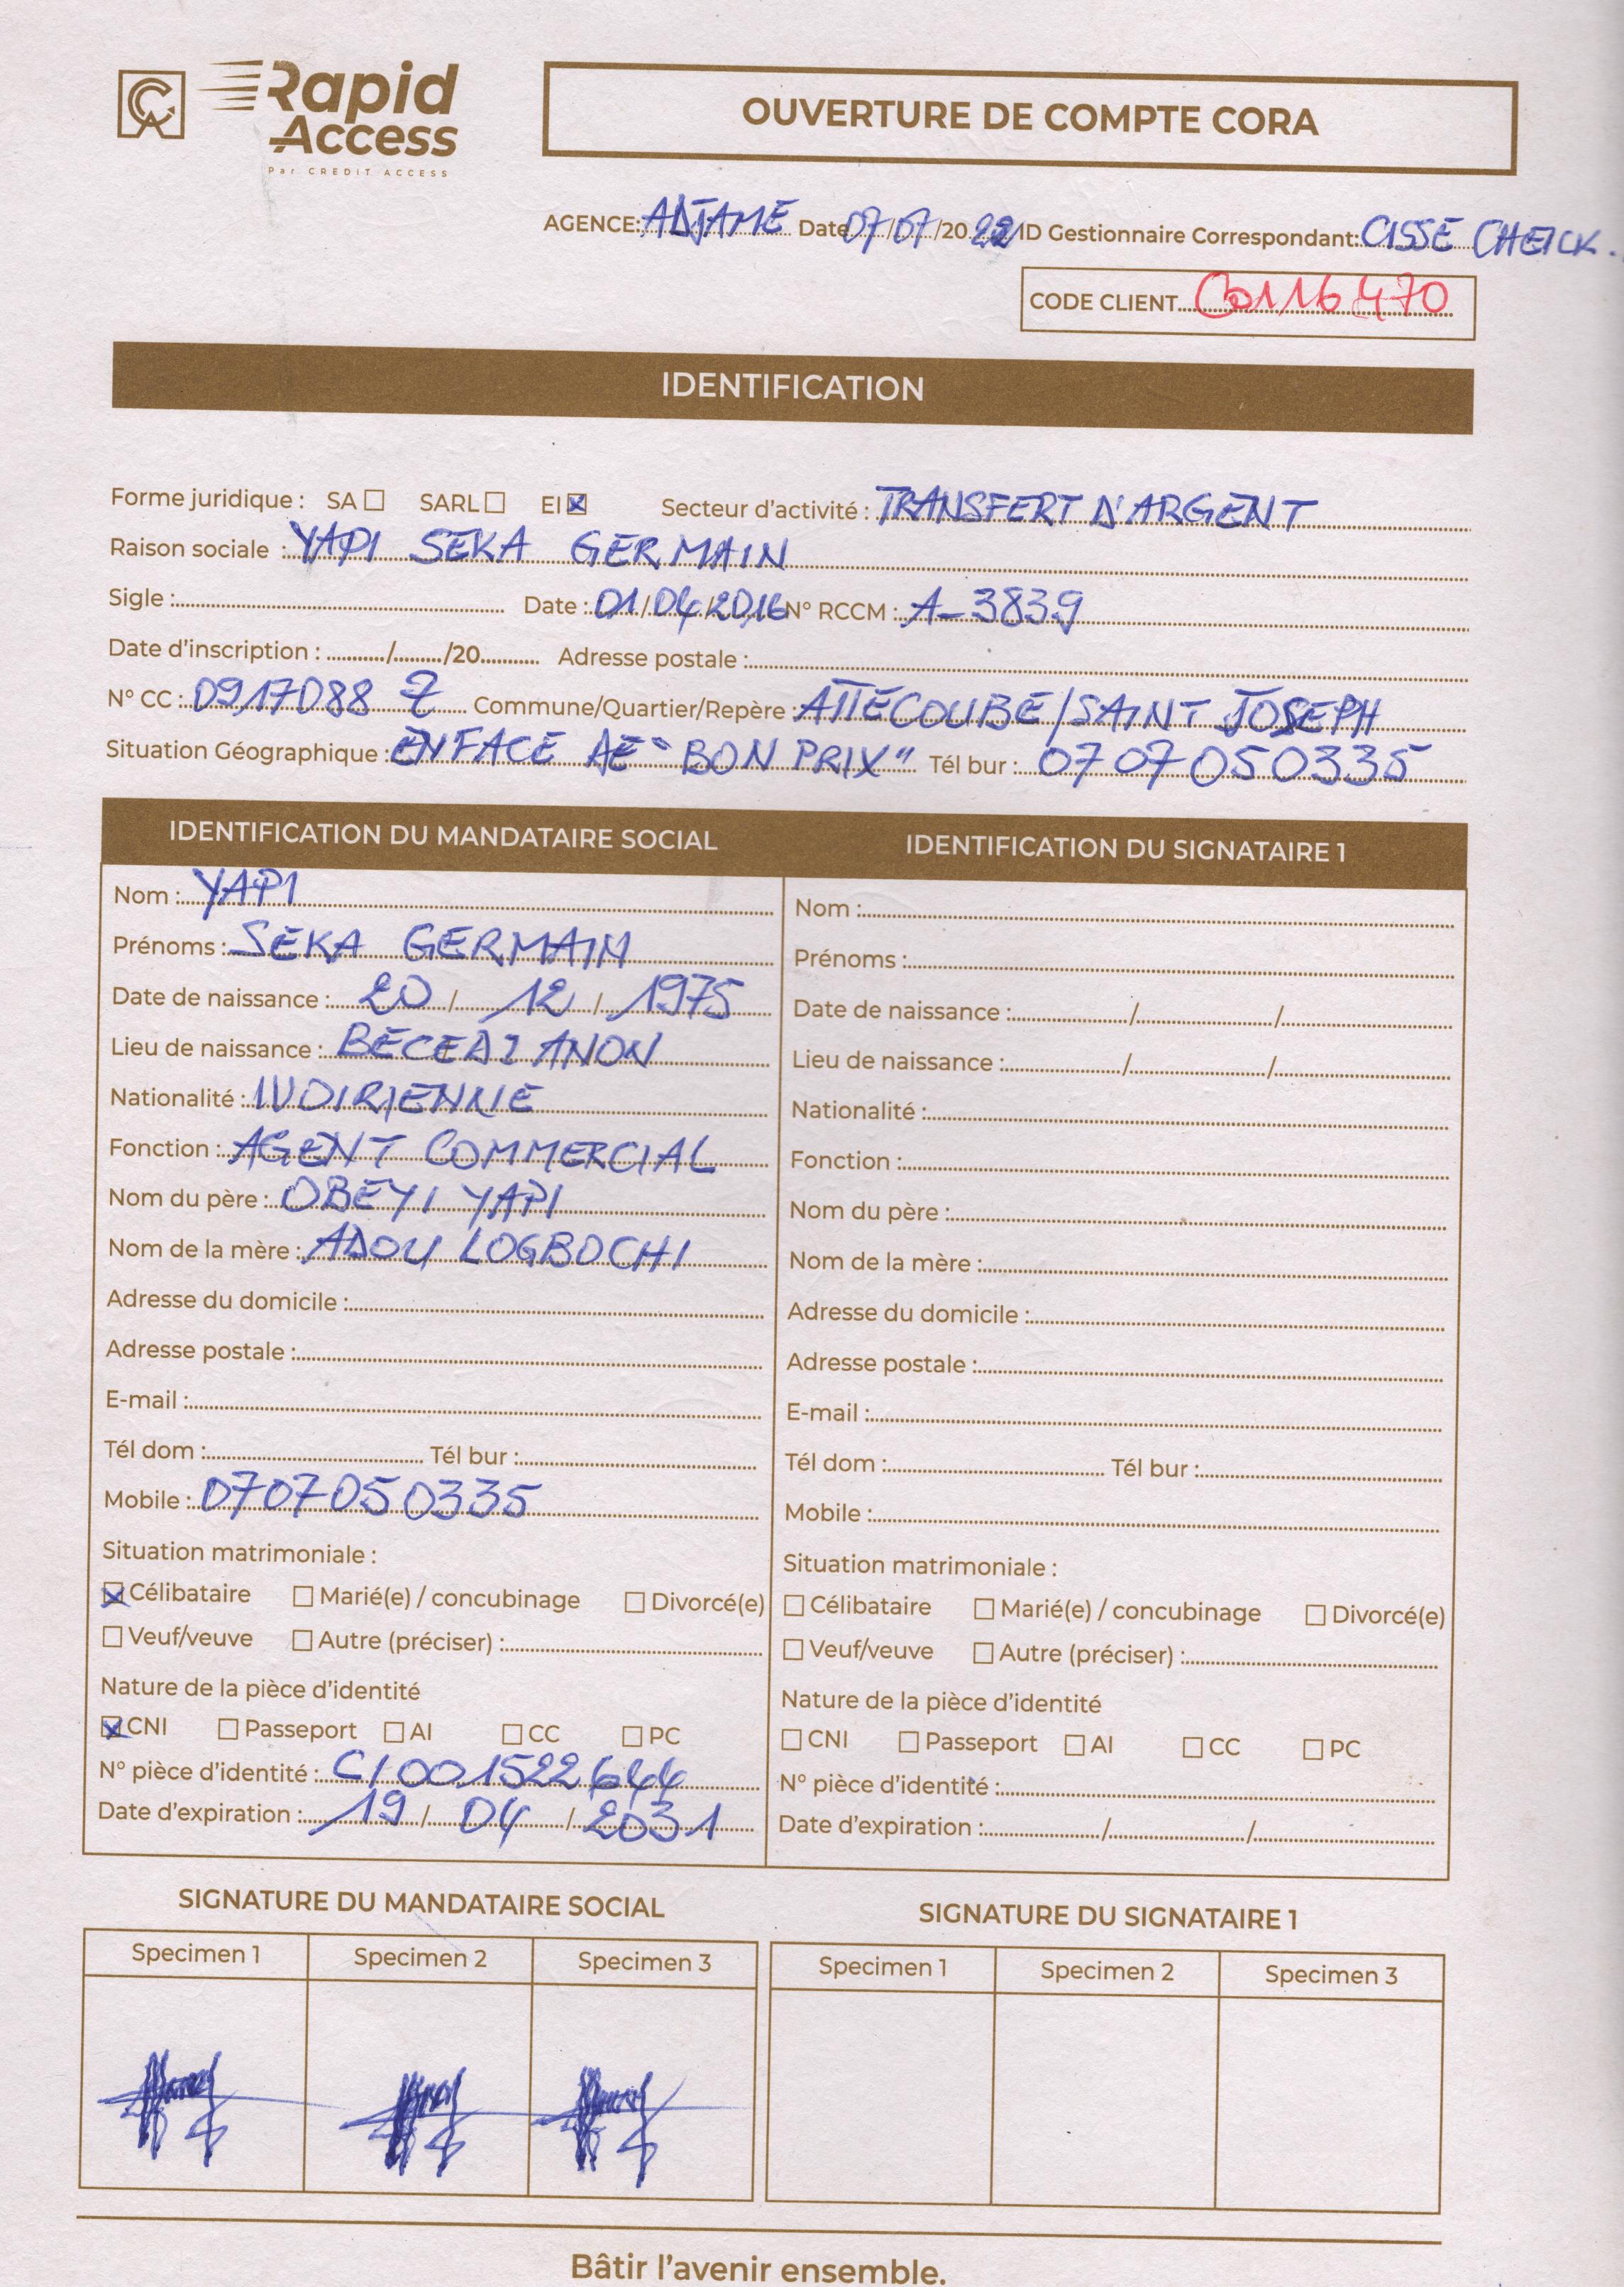 CA Rapid Access
Par CREDIT ACCESS
OUVERTURE DE COMPTE CORA
AGENCE: ADJAME Date 07/07/2022 ID Gestionnaire Correspondant: CISSE CHEICK.
CODE CLIENT C0116470
IDENTIFICATION
Forme juridique : SA ☐ SARL ☐ EI ☒ Secteur d'activité : TRANSFERT D'ARGENT
Raison sociale : YAPI SEKA GERMAIN
Sigle : Date : 01/04/2016 N° RCCM : A-3839
Date d'inscription : / /20 Adresse postale :
N° CC : 0917088 Z Commune/Quartier/Repère : ATTECOUBE/SAINT JOSEPH
Situation Géographique : EN FACE DE "BON PRIX" Tél bur : 0707050335
IDENTIFICATION DU MANDATAIRE SOCIAL
Nom : YAPI
Prénoms : SEKA GERMAIN
Date de naissance : 20 / 12 / 1975
Lieu de naissance : BECEDI ANON
Nationalité : IVOIRIENNE
Fonction : AGENT COMMERCIAL
Nom du père : OBEYI YAPI
Nom de la mère : ADOU LOGBOCHI
Adresse du domicile :
Adresse postale :
E-mail :
Tél dom : Tél bur :
Mobile : 0707050335
Situation matrimoniale :
☒ Célibataire ☐ Marié(e) / concubinage ☐ Divorcé(e)
☐ Veuf/veuve ☐ Autre (préciser) :
Nature de la pièce d'identité
☒ CNI ☐ Passeport ☐ AI ☐ CC ☐ PC
N° pièce d'identité : CI001522644
Date d'expiration : 19 / 04 / 2031
IDENTIFICATION DU SIGNATAIRE 1
Nom :
Prénoms :
Date de naissance : / /
Lieu de naissance : / /
Nationalité :
Fonction :
Nom du père :
Nom de la mère :
Adresse du domicile :
Adresse postale :
E-mail :
Tél dom : Tél bur :
Mobile :
Situation matrimoniale :
☐ Célibataire ☐ Marié(e) / concubinage ☐ Divorcé(e)
☐ Veuf/veuve ☐ Autre (préciser) :
Nature de la pièce d'identité
☐ CNI ☐ Passeport ☐ AI ☐ CC ☐ PC
N° pièce d'identité :
Date d'expiration : / /
SIGNATURE DU MANDATAIRE SOCIAL
Specimen 1 Specimen 2 Specimen 3
SIGNATURE DU SIGNATAIRE 1
Specimen 1 Specimen 2 Specimen 3
Bâtir l'avenir ensemble.